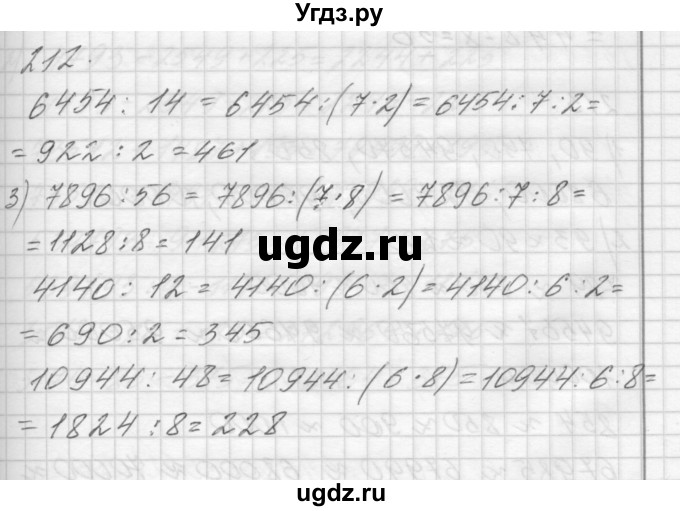 Угдз.ру
212.
6454 : 14 = 6454 : (7·2) = 6454 : 7 : 2 =
= 922 : 2 = 461
3) 7896 : 56 = 7896 : (7·8) = 7896 : 7 : 8 =
= 1128 : 8 = 141
ugdz.ru
4140 : 12 = 4140 : (6·2) = 4140 : 6 : 2 =
= 690 : 2 = 345
10944 : 48 = 10944 : (6·8) = 10944 : 6 : 8 =
= 1824 : 8 = 228
ugdz.ru